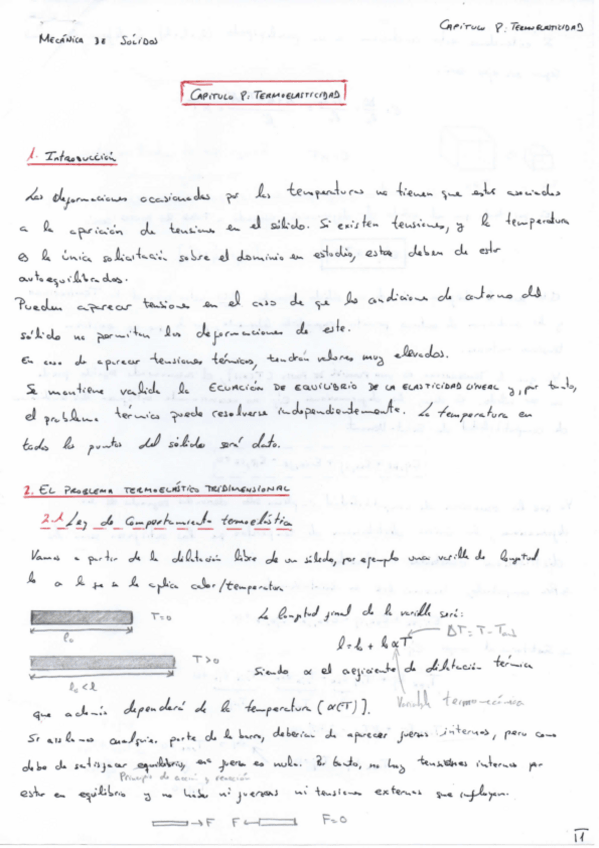 CAPITULO 8: TERMOELASTICIDAD
MECÁNICA DE SÓLIDOS
CAPITULO 8: TERMOELASTICIDAD
1. INTRODUCCIÓN
Las deformaciones ocasionadas por las temperaturas no tienen que estar asociadas
a la aparición de tensiones en el sólido. Si existen tensiones, y la temperatura
es la única solicitación sobre el dominio en estudio, estas deben de estar
autoequilibradas.
Pueden aparecer tensiones en el caso de que las condiciones de contorno del
sólido no permitan las deformaciones de este.
En caso de aparecer tensiones térmicas, tendrán valores muy elevados.
Se mantiene valida la ECUACIÓN DE EQUILIBRIO DE LA ELASTICIDAD LINEAL y, por tanto,
el problema térmico puede resolverse independientemente. La temperatura en
todos los puntos del sólido será dato.
2. EL PROBLEMA TERMOELÁSTICO TRIDIMENSIONAL
2.1 Ley de Comportamiento termoelástica
Vamos a partir de la dilatación libre de un sólido, por ejemplo una varilla de longitud
l₀ a la que se la aplica calor/temperatura
T=0
l₀
La longitud final de la varilla será:
l = l₀ + l₀αT
ΔT = T -
T>0
l₀<l
siendo α el coeficiente de dilatación térmica
Variable termomecánica
que además dependerá de la temperatura [α(T)].
Si aislamos cualquier parte de la barra, deberían de aparecer fuerzas internas, pero como
debe de satisfacer equilibrio, esa fuerza es nula. Por tanto, no hay tensiones internas por
Principio de acción y reacción
estar en equilibrio y no haber ni fuerzas ni tensiones externas que influyan.
F F F=0
11